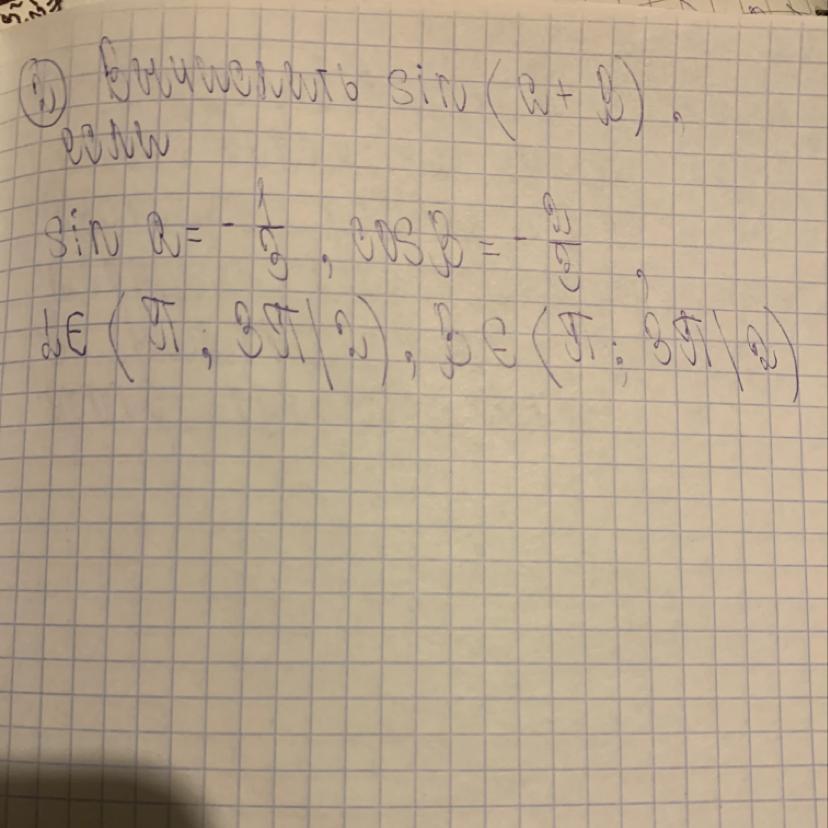 ② Вычислить sin (α + β),
если
sin α = - 1/3, cos β = - 2/3,
α ∈ (π; 3π\2), β ∈ (π; 3π\2)